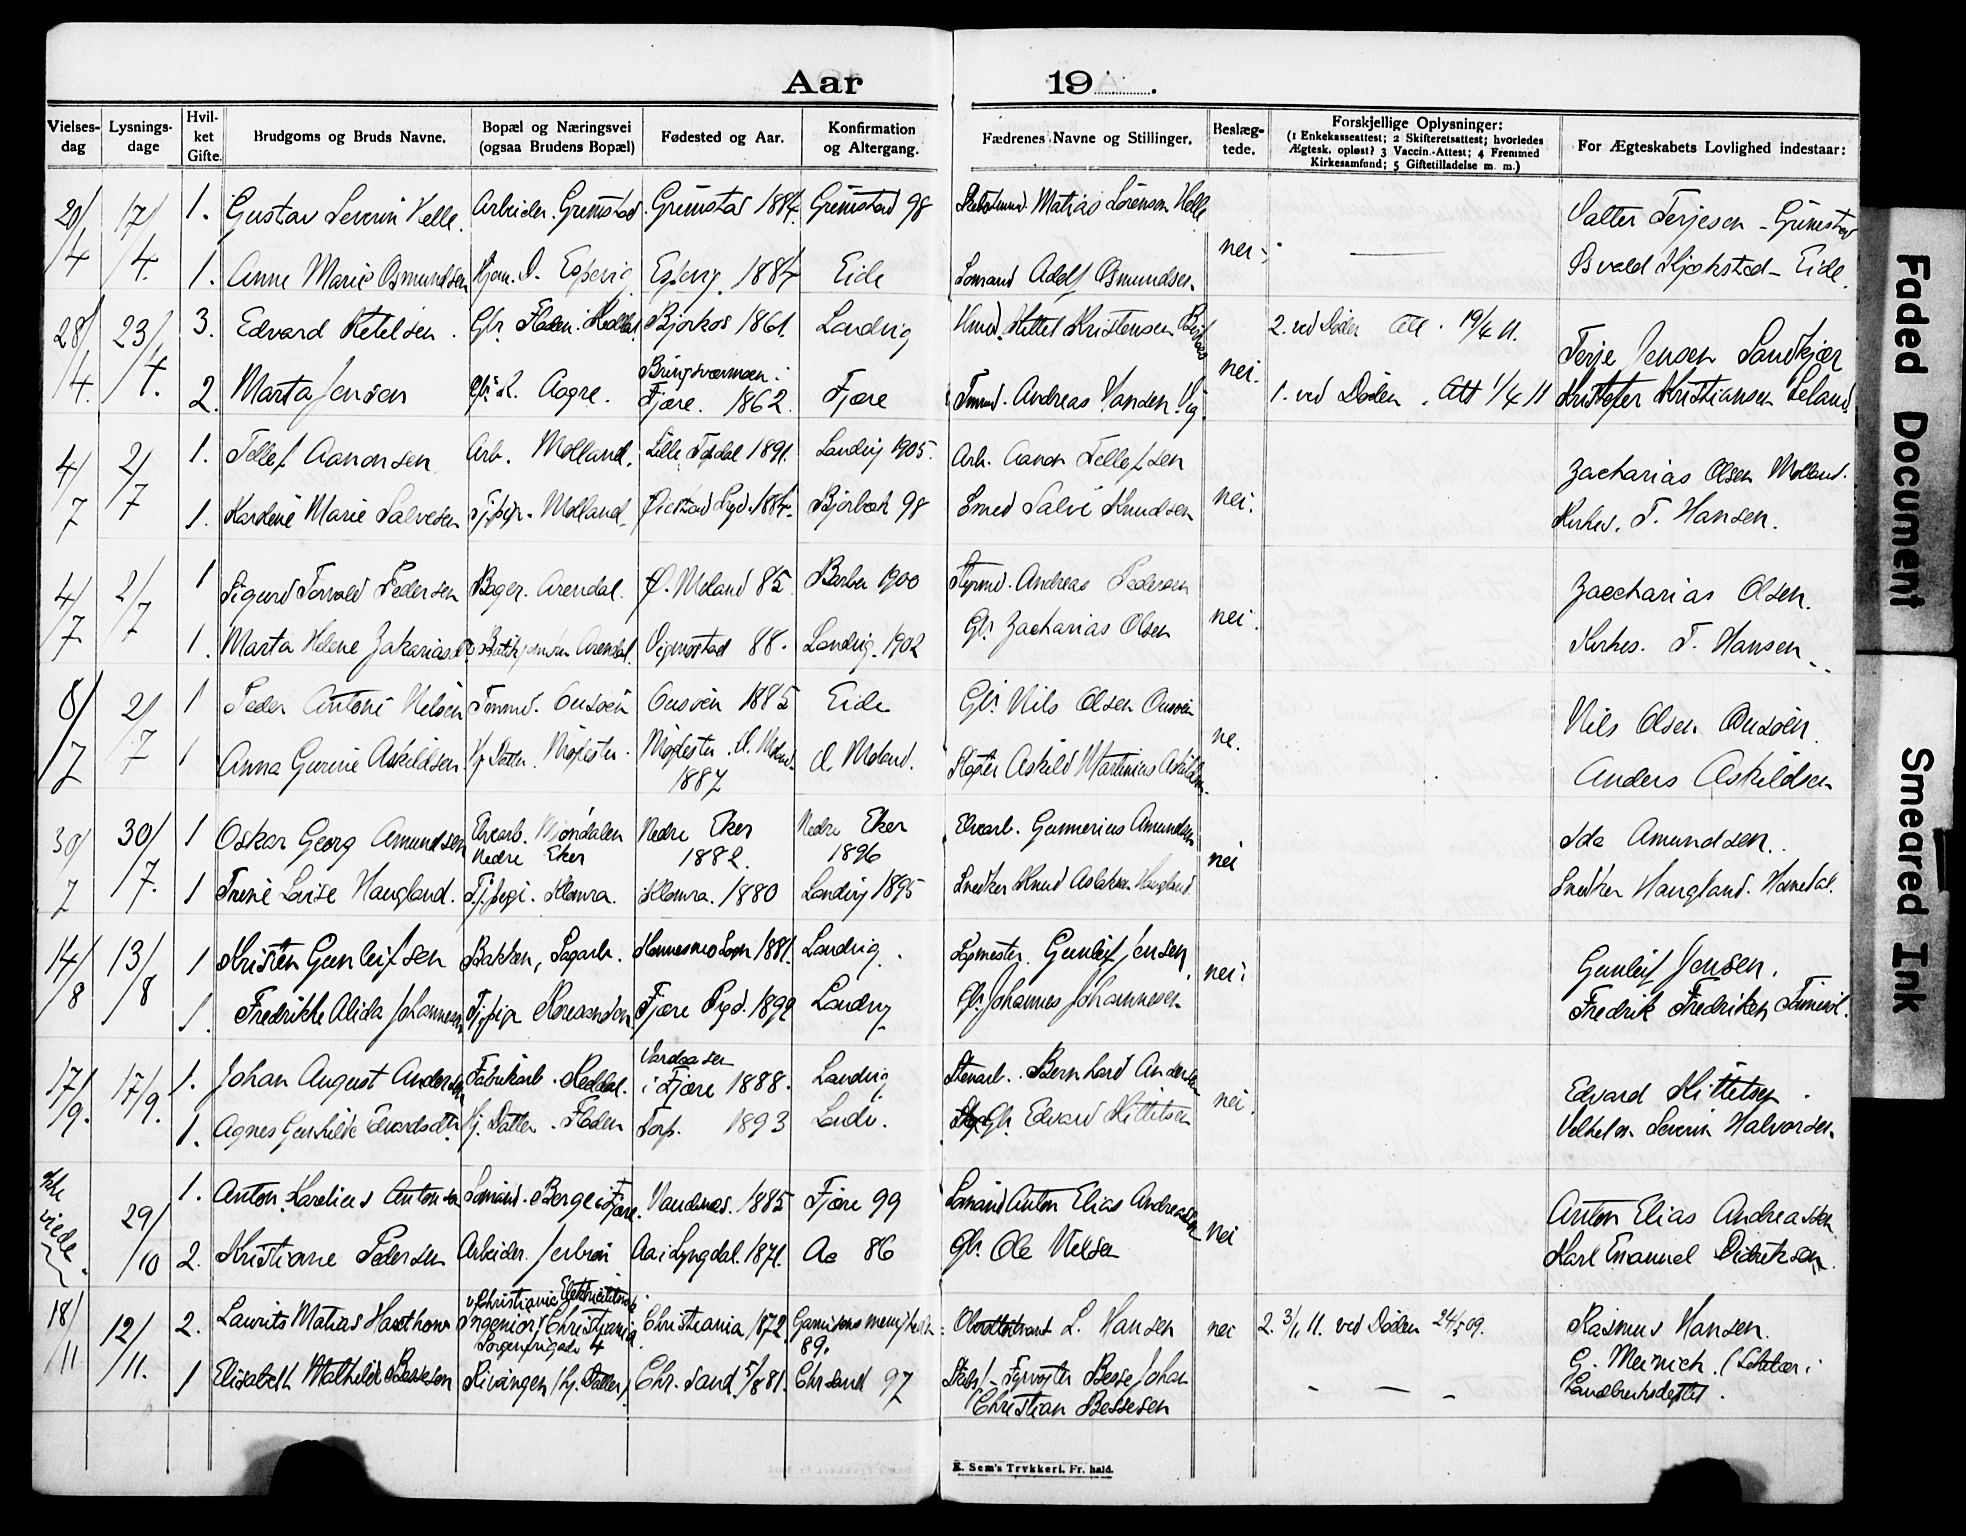 Aar 19
Vielses-dag | Lysnings-dage | Hvil-ket Gifte. | Brudgoms og Bruds Navne. | Bopæl og Næringsvei (ogsaa Brudens Bopæl) | Fødested og Aar. | Konfirmation og Altergang. | Fædrenes Navne og Stillinger. | Beslæg-tede. | Forskjellige Oplysninger: (1 Enkekasseattest; 2 Skifteretsattest; hvorledes Ægtesk. opløst? 3 Vaccin.-Attest; 4 Fremmed Kirkesamfund; 5 Giftetilladelse m. m.) | For Ægteskabets Lovlighed indestaar:
20/4 17/4 1. Gustav Severin Helle. Arbeider. Grimstad. Grimstad 1884. Grimstad 98 Matias Sörensen Helle nei Valter Terjesen - Grimstad
1. Anne Marie Osmundsen Espevig Espevig. 1884 Eide Lomand Adolf Osmundsen. Osvald Kjøkstad - Eide.
28/4 23/4 3. Edvard Ketelsen. Gbr. Floden. Reddal. 1861. Landvig Kittel Kristensen 2. ved Døden Att. 19/4 11. Terje Jensen Landkjær
2. Marta Jensen Aagre. Fjære. 1862. Fjære Andreas Hansen Vig nei. 1. ved Døden. Att 1/4 11 Kristofer Kristiansen Leland
4/7 2/7 1. Tellef Aanonsen Arb. Molland. Lille Topdal 1891. Landvig 1905. Arb. Aanon Tellefsen nei. Zacharias Olsen Molland.
1. Karoline Marie Salvesen Tjpige. Molland. Øiestad Sogd. 1884. Bjorbæk 98 Smed Salve Knudsen Kirkes. T. Hansen.
4/7 2/7 1 Sigurd Torvald Pedersen Bager. Arendal. Ø. Moland 85. Barbu 1900 Styrmd. Andreas Pedersen nei. Zaccharias Olsen.
1. Marta Helene Zakariasen Arendal. 88. Landvig. 1902 Gbr. Zacharias Olsen Kirkes. T. Hansen
8/7 2/7 1 Peder Antoni Nilsen Tmmd. Ousøen Ousøen 1885 Eide Gbr. Nils Olsen Ousøen ne. Nils Olsen Ousøen.
1 Anna Gurine Askildsen Hj. Datter. 1887 Ø. Moland. Askild Martinius Askildsen Anders Askildsen
30/7 30/7. 1 Oskar Georg Amundsen Elvearb. Mjøndalen Nedre Eker Nedre Eker 1882. Nedre Eker 1896 Elvearb. Gunnerius Amundsen nei Ida Amundsen.
1 Trine Lovise Haugland. Homra. Homra. 1880 Landvig 1895 Snedker Knud Aslaksen Haugland Snedker Haugland. Homedal.
14/8 13/8 1 Kristen Gunleifsen Bakken, Sagarb. 1881. Landvig. Sagmester. Gunleif Jensen nei. Gunleif Jensen.
1. Fredrikke Alida Johannesen Tjpige Fjære Pregd. 1892 Landvig Gbr. Johannes Johannesen Fredrik Fredriksen
17/9. 17/9. 1. Johan August Andersen Fabrikarb. Reddal. i Fjære 1888. Landvig Stenarb. Bernhard Andersen nei. Edvard Kittelsen.
1. Agnes Gunhilde Edvardsdtr. Hj. Datter. Floden Torp. 1893 Landv. Gbr. Edvard Kittelsen Velhelm Severin Halvorsen
Ikke viede. 29/10 1. Anton Karelius Antonsen Lomand. Berge i Fjære. 1885 Fjære 99 Lomand Anton Elias Andreassen nei Anton Elias Andreassen.
2. Kristiane Pedersen Arbeider. Aa i Lyngdal. 1871. Aa 86 Gbr. Ole Nilsen Karl Emanuel Didriksen.
18/11 12/11. 2. Laurits Matias Haxthow v. Christiania Elektricitetsv. Ingeniør, Christiania. Sorgenfrigade 4 Christiania 1872 Garnisonsmenigheden 89. L. Hansen nei 2. 3/1 11. ved Døden 24/5 09. Rasmus Hansen.
1 Elisabeth Mathilde Bessesen Rivingen (Hj. Datter) Chr. sand 5/8 81. Chr sand 97 Fyrvogter Besse Johan Christian Bessesen G. Meinich. (Sekretær i Landbruksdeptet.
E. Sem's Trykkeri. Fr. hald.
Faded Document
Smeared Ink